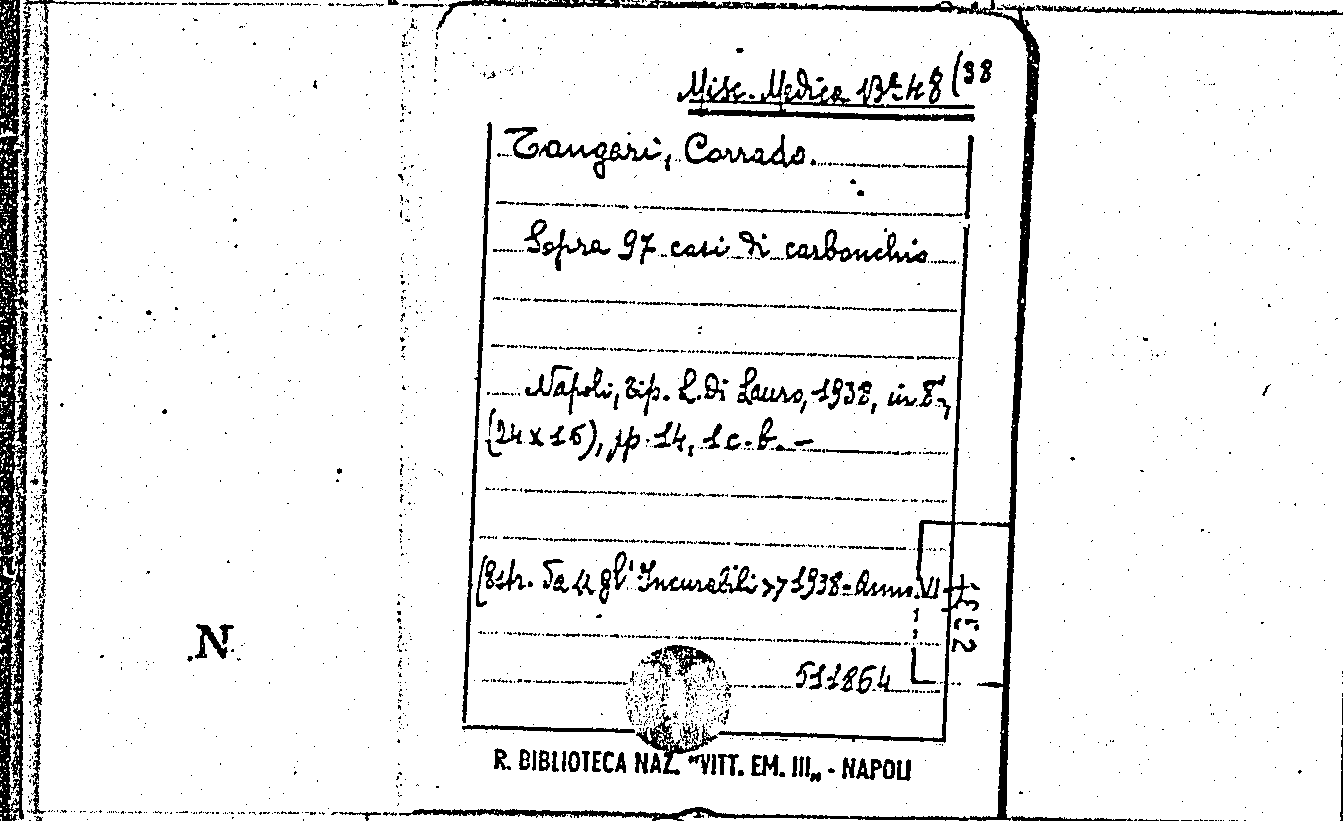 Misc. Medica Bª 48 (38
Tangari, Corrado.
Sopra 97 casi di carbonchio
Napoli, tip. L. Di Lauro, 1938, in 8°,
(24 x 16), pp. 14, 1 c. b. –
(Estr. Da « gl' Incurabili » 1938 - Anno VI
511864
N
R. BIBLIOTECA NAZ. "VITT. EM. III„ - NAPOLI